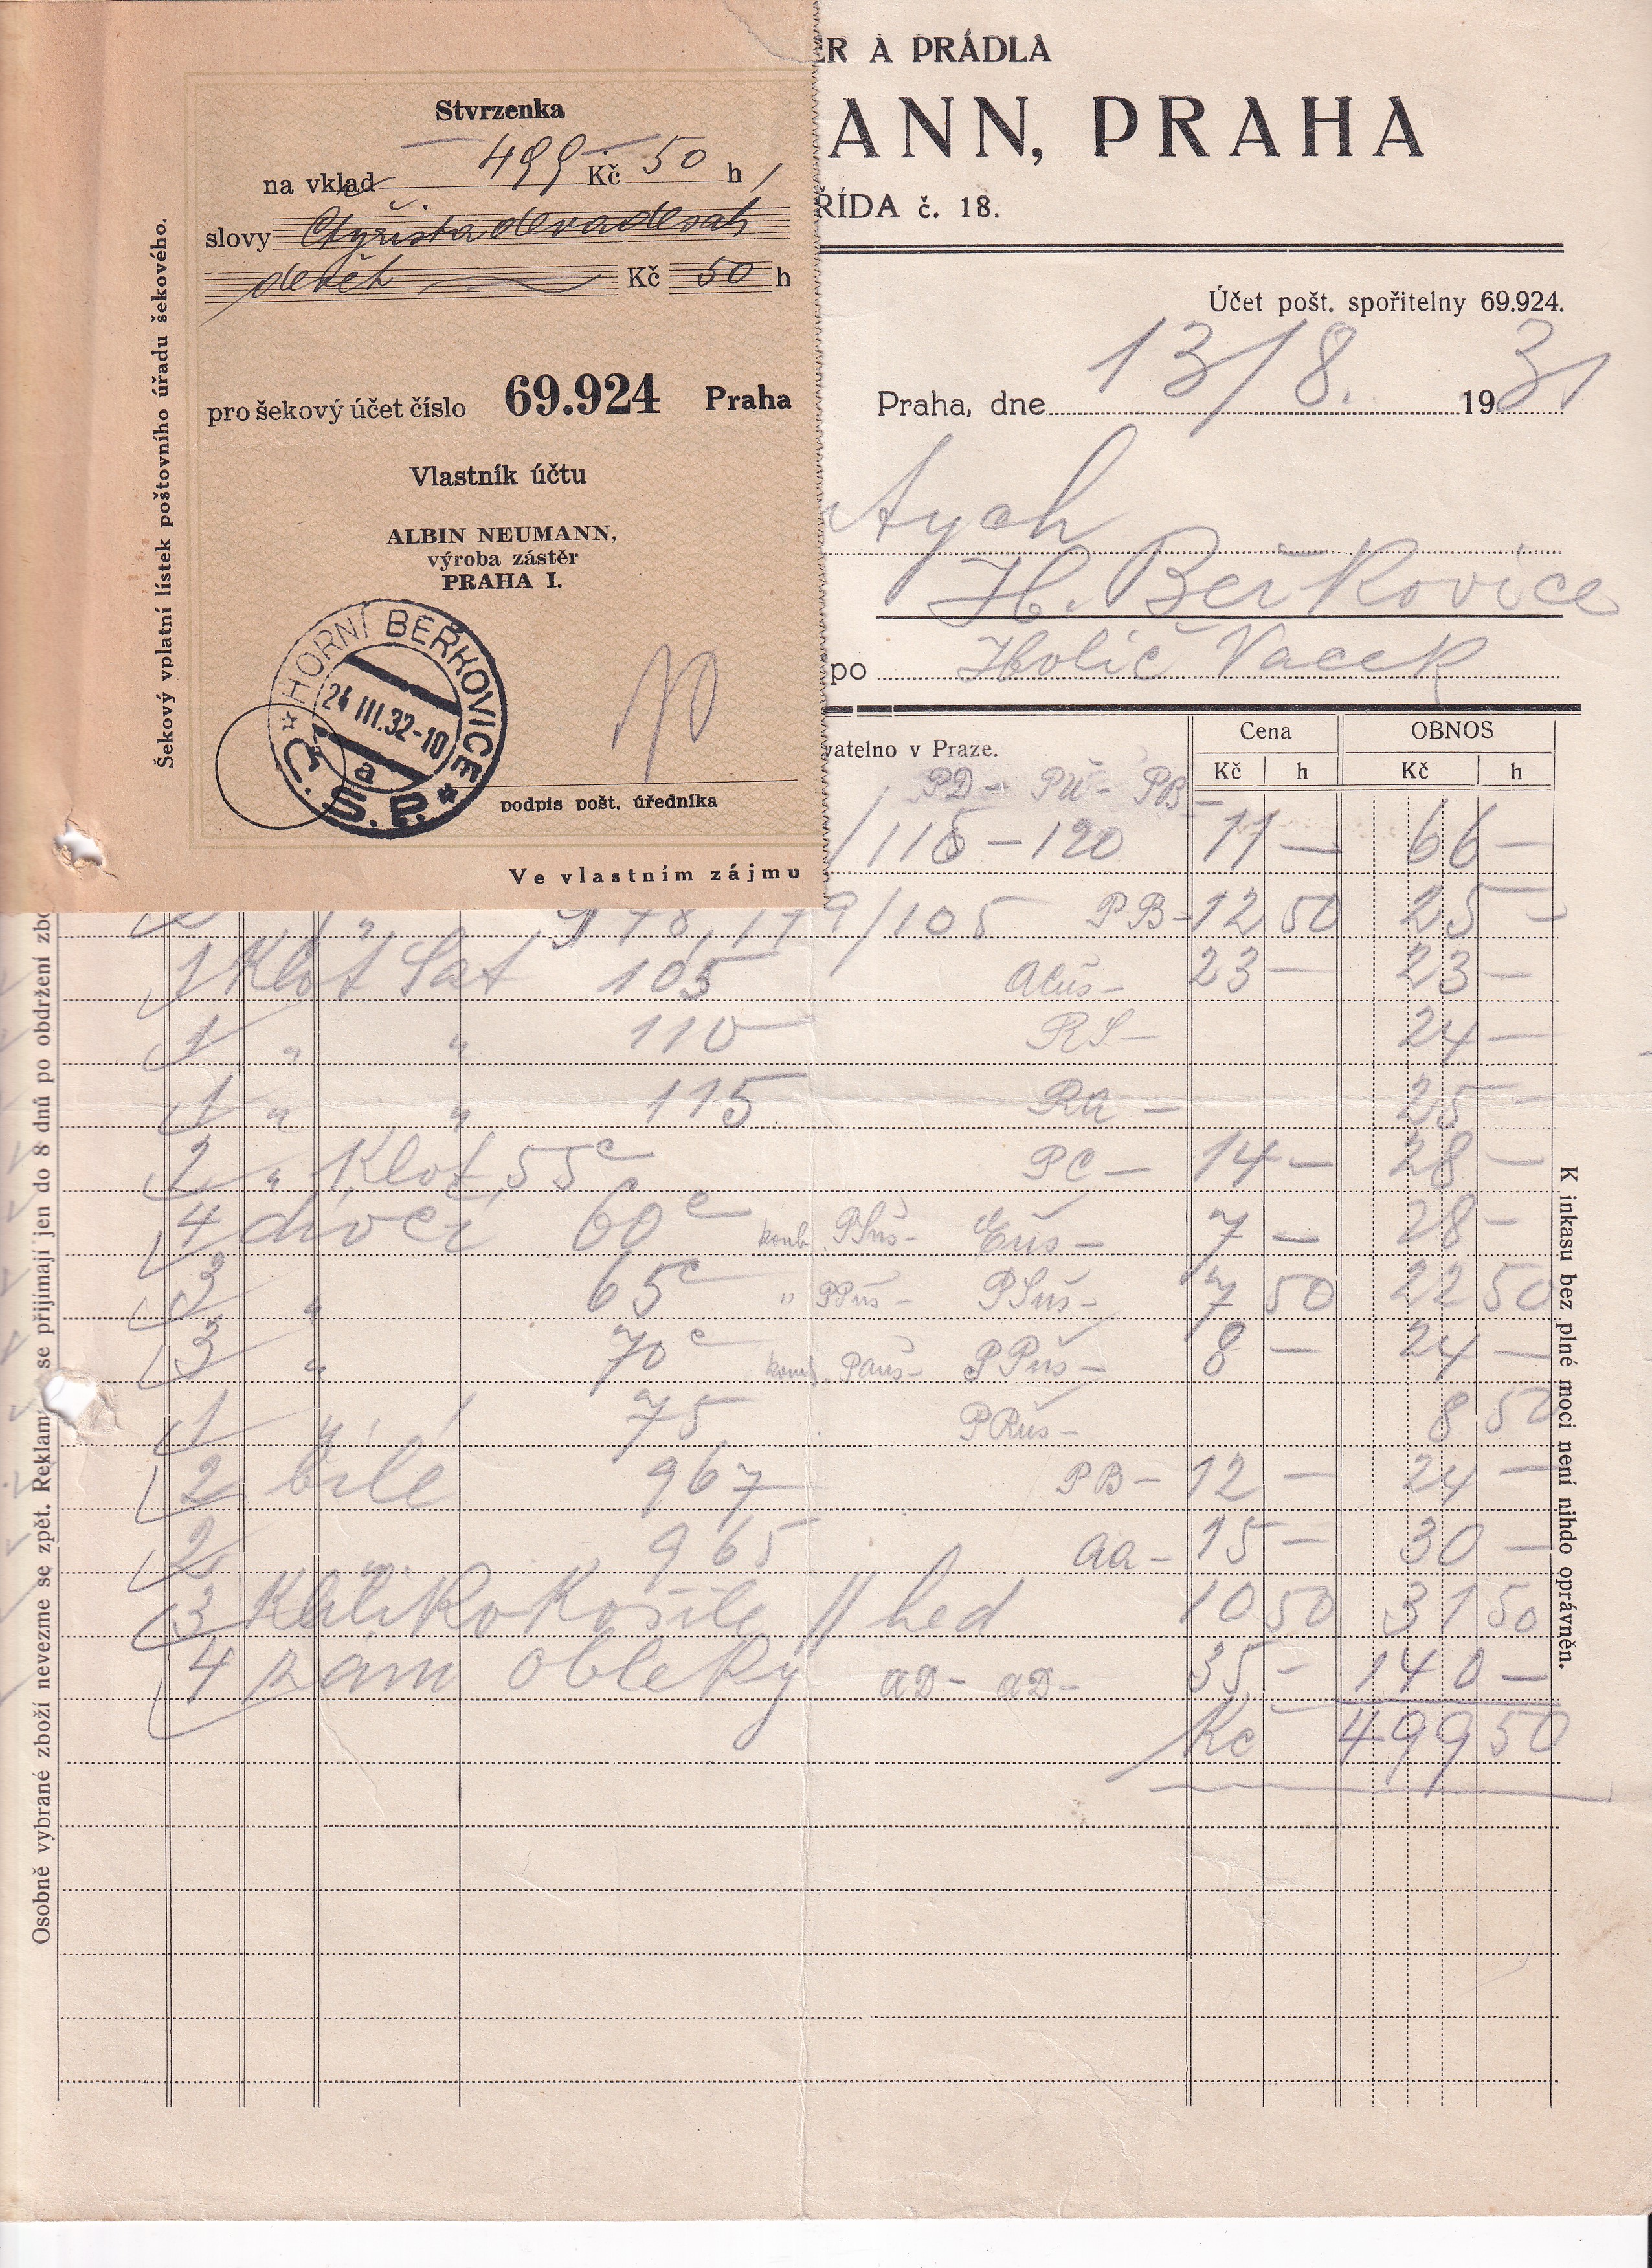 Stvrzenka
na vklad 499 Kč 50 h
slovy Čtyřista devadesát
devět Kč 50 h
pro šekový účet číslo 69.924 Praha
Vlastník účtu
ALBIN NEUMANN,
výroba zástěr
PRAHA I.
HORNÍ BEŘKOVICE
24 III.32-10
a
Č.S.P.
podpis pošt. úředníka
Ve vlastním zájmu
Šekový vplatní lístek poštovního úřadu šekového.
ĚR A PRÁDLA
ANN, PRAHA
ŘÍDA č. 18.
Účet pošt. spořitelny 69.924.
Praha, dne 13/8. 1931
H. Beřkovice
po Holič Vacek
vatelno v Praze. Cena OBNOS
Kč h Kč h
PD- PÚ- PB-
/115-120 11 — 66 —
2 " 978, 179/105 PB- 12 50 25 —
1 Klot Sat 105 ACúš- 23 — 23 —
1 " " 110 RS- 24 —
1 " " 115 RA- 25 —
2 " Klot 55c PC- 14 — 28 —
4 dívčí 60c komb. PSúš- Eúš- 7 — 28 —
3 " 65c " PPúš- PSúš- 7 50 22 50
3 " 70c komb. PAúš- PPúš- 8 — 24 —
1 " 75 PRúš- 8 50
2 bílé 967 PB- 12 — 24 —
2 " 965 AA- 15 — 30 —
3 Kliko Košile // hed 10 50 31 50
4 obleky AD- AD- 35 — 140 —
Kč 499 50
Osobně vybrané zboží nevezme se zpět. Reklam se přijímají jen do 8 dnů po obdržení zbo
K inkasu bez plné moci není nihdo oprávněn.